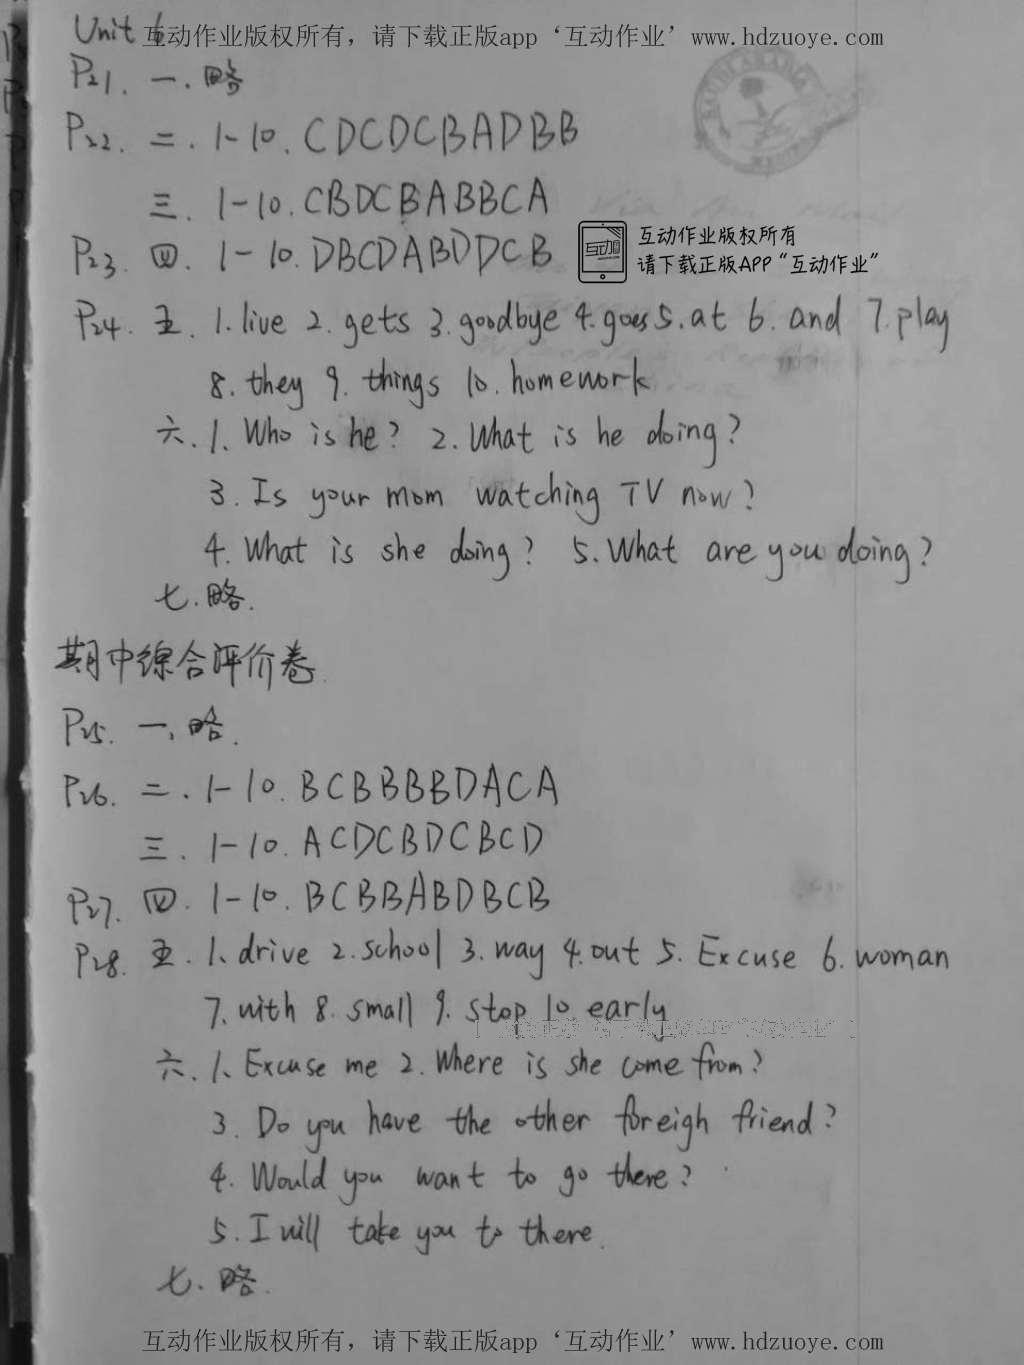 Unit 6
互动作业版权所有，请下载正版app‘互动作业’www.hdzuoye.com
P21. 一. 略
P22. 二. 1-10. CDCDCBADBB
三. 1-10. CBDCBABBCA
P23. 四. 1-10. DBCDABDDCB
互动作业版权所有
请下载正版APP“互动作业”
P24. 五. 1. live 2. gets 3. goodbye 4. goes 5. at 6. and 7. play
8. they 9. things 10. homework
六. 1. Who is he? 2. What is he doing?
3. Is your mom watching TV now?
4. What is she doing? 5. What are you doing?
七. 略.
期中综合评价卷.
P25. 一. 略.
P26. 二. 1-10. BCBBBBDACA
三. 1-10. ACDCBDCBCD
P27. 四. 1-10. BCBBABDBCB
P28. 五. 1. drive 2. school 3. way 4. out 5. Excuse 6. woman
7. with 8. small 9. stop 10. early
六. 1. Excuse me 2. Where is she come from?
3. Do you have the other foreigh friend?
4. Would you want to go there?
5. I will take you to there.
七. 略.
互动作业版权所有，请下载正版app‘互动作业’www.hdzuoye.com